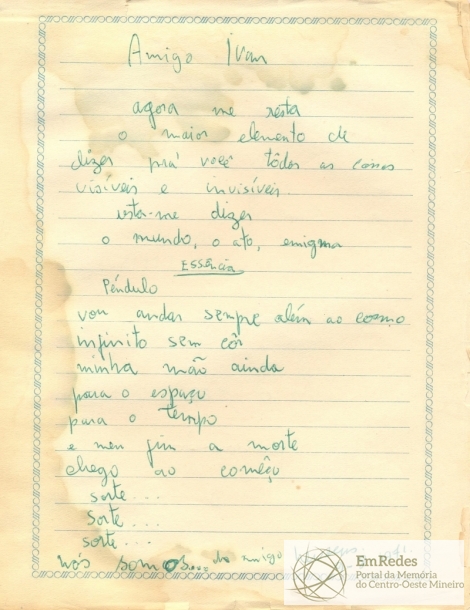 Amigo Ivan
agora me resta
o maior elemento de
dizer prá você tôdas as coisas
visíveis e invisíveis.
resta-me dizer
o mundo, o ato, enigma
ESSÊNCIA
Pêndulo
vou andar sempre além ao cosmo
infinito sem côr
minha mão ainda
para o espaço
para o tempo
e meu fim a morte
chego ao comêço
sorte...
sorte...
sorte...
nós somos... amigo
EmRedes
Portal da Memória
do Centro-Oeste Mineiro